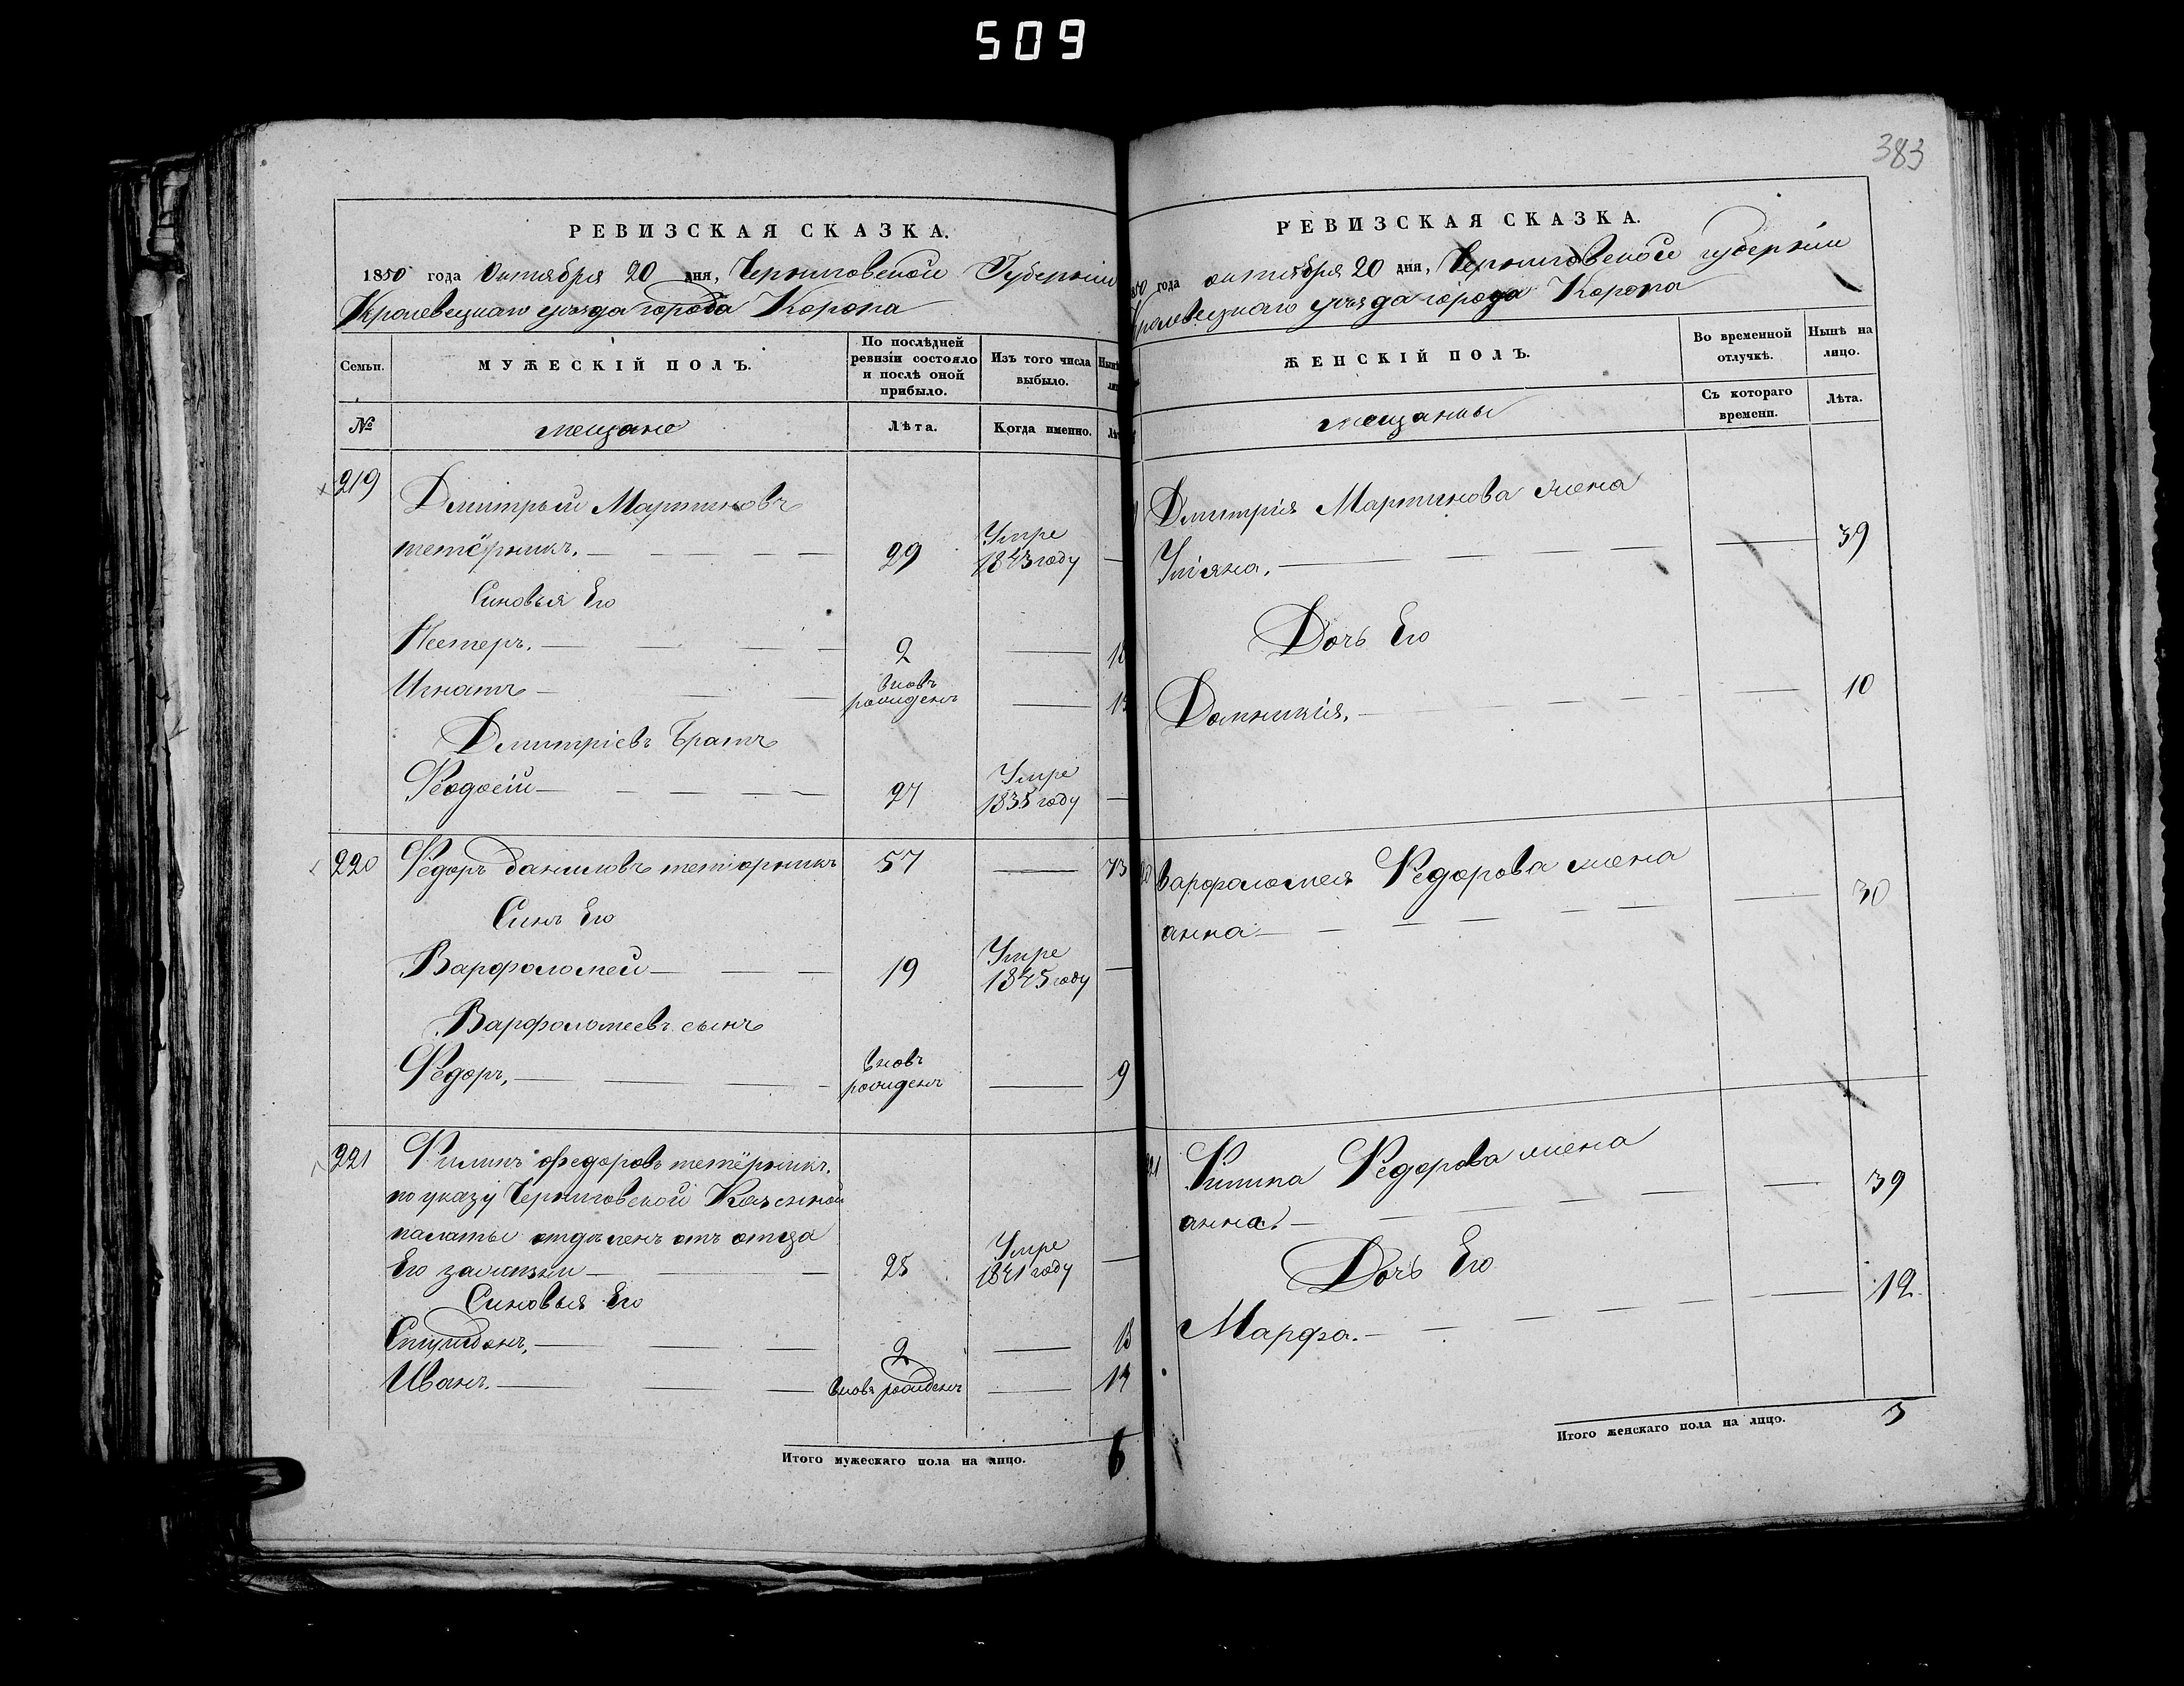 509
РЕВИЗСКАЯ СКАЗКА.
1850 года Октября 20 дня, Черниговской Губернии
Кролевецкаго уезда города Коропа
Семьи.
МУЖЕСКІЙ ПОЛЪ.
По послѣдней ревизіи состояло и послѣ оной прибыло.
Изъ того числа выбыло.
№
мещане
Лѣта.
Когда именно.
219
Дмитрый Мартиновъ
тетёрникъ. 29 Умре 1843 году
Синовья Его
Нестеръ. 2
Игнатъ вновь рожденъ
Дмитріевъ Братъ
Феодосій 27 Умре 1835 году
220 Фёдоръ Даниловъ тетіорникъ 57 73
Синъ Его
Варфоломей 19 Умре 1845 году
Варфоломеевъ сынъ
Фёдоръ, вновь рожденъ 9
221 Филипъ Федоровъ тетёрникъ.
по указу Черниговской Казенной
палаты отделенъ отъ отца
Его 25 Умре 1841 году
Синовья Его
Спиридонъ, 2
Иванъ. вновь рожденъ 14
Итого мужескаго пола на лицо. 6
383
РЕВИЗСКАЯ СКАЗКА.
1850 года октября 20 дня, Черниговской губерніи
Кролевецкаго уезда города Коропа
ЖЕНСКІЙ ПОЛЪ.
Во временной отлучкѣ.
Нынѣ на лицо.
мещанкы
Съ котораго времени.
Лѣта.
Дмитрія Мартинова жена
Уліяна. 39
Дочь Его
Домникія. 10
Варфоломея Фёдорова жена
анна 30
Филипа Фёдорова жена
анна. 39
Дочь Его
Марфа. 12
Итого женскаго пола на лицо. 5